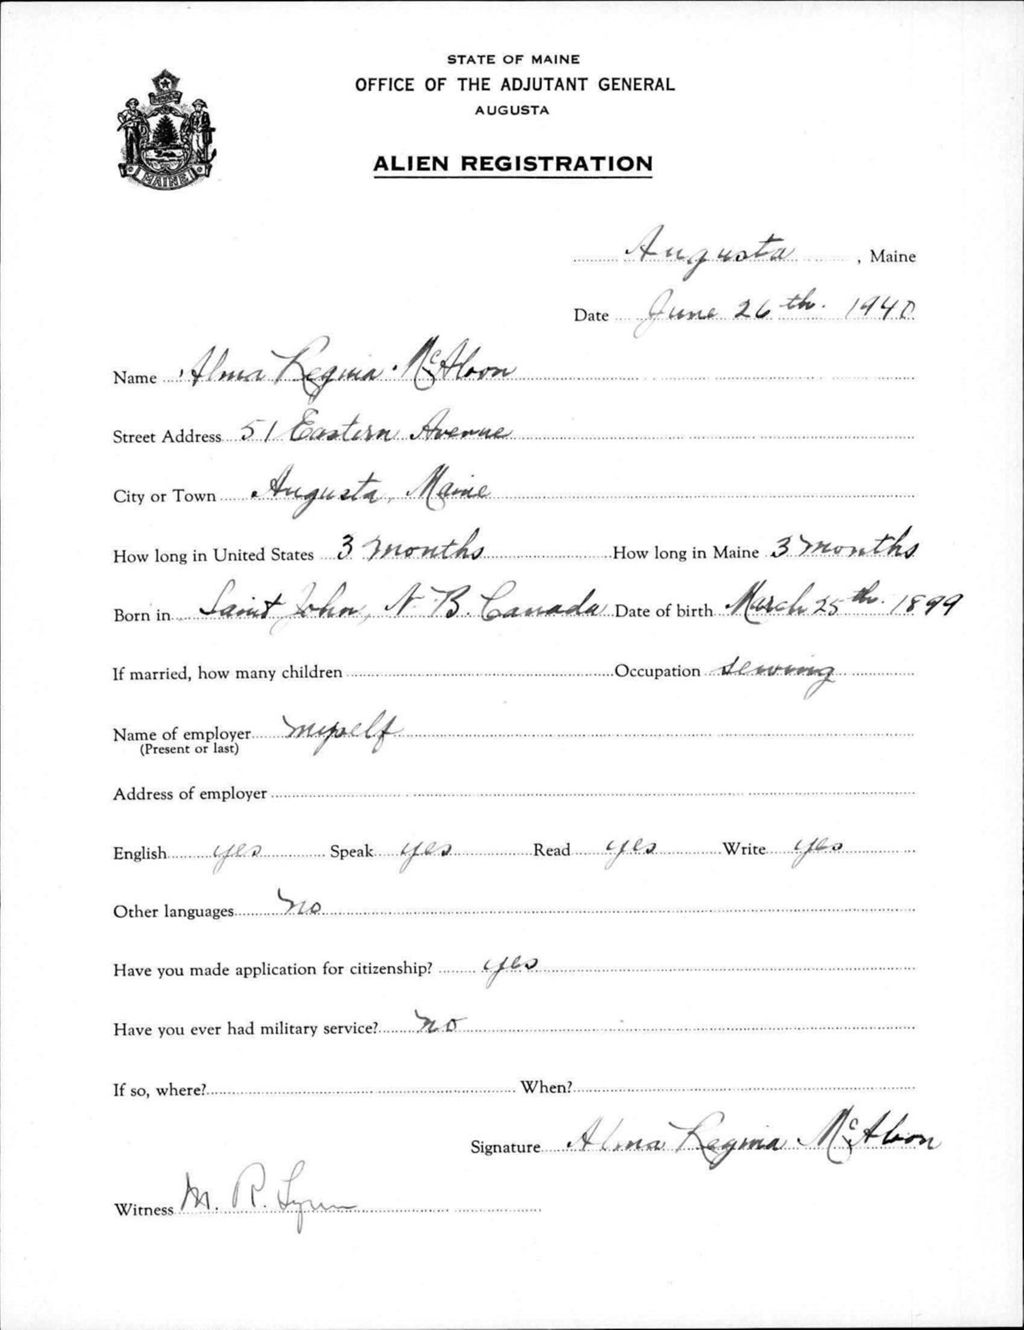 STATE OF MAINE
OFFICE OF THE ADJUTANT GENERAL
AUGUSTA
MAINE
ALIEN REGISTRATION
Augusta, Maine
Date June 26th. 1940
Name Alma Regina McAloon
Street Address 51 Eastern Avenue
City or Town Augusta, Maine
How long in United States 3 months How long in Maine 3 months
Born in Saint John, N. B. Canada Date of birth March 25th. 1899
If married, how many children Occupation sewing
Name of employer myself
(Present or last)
Address of employer
English yes Speak yes Read yes Write yes
Other languages no
Have you made application for citizenship? yes
Have you ever had military service? no
If so, where? When?
Signature Alma Regina McAloon
Witness M. R. Lynn